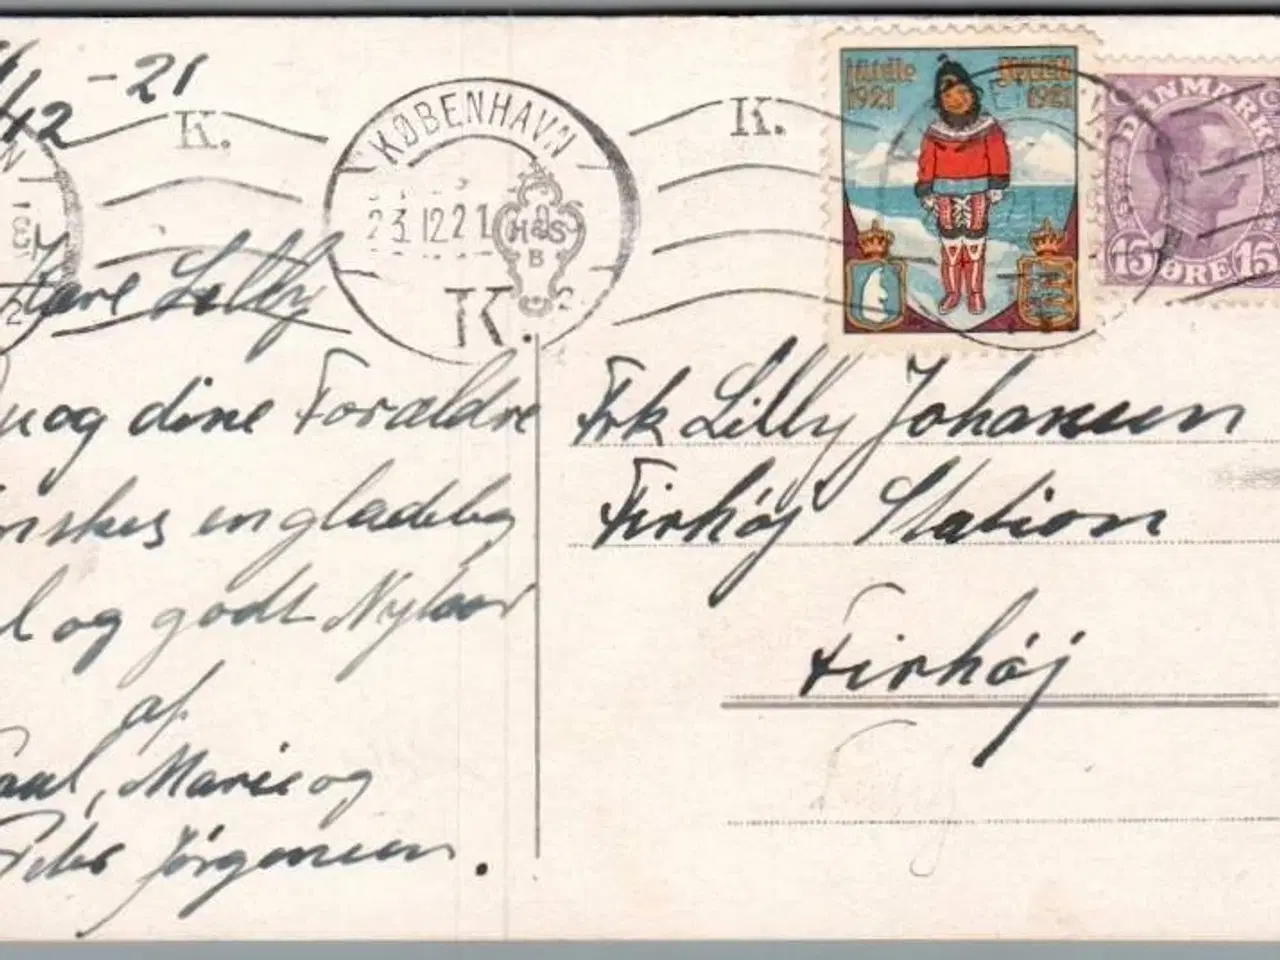 /12 -21
K.
KØBENHAVN
23.12.21
H&S
B
K.
2
K.
JULEN
1921
1921
DANMARK
15 ØRE 15
Kære Lilly
Du og dine Forældre
ønskes en glædelig
og godt Nytaar
af
Paul, Marie og
Peter Jørgensen.
Frk Lilly Johansen
Firhøj Station
Firhøj